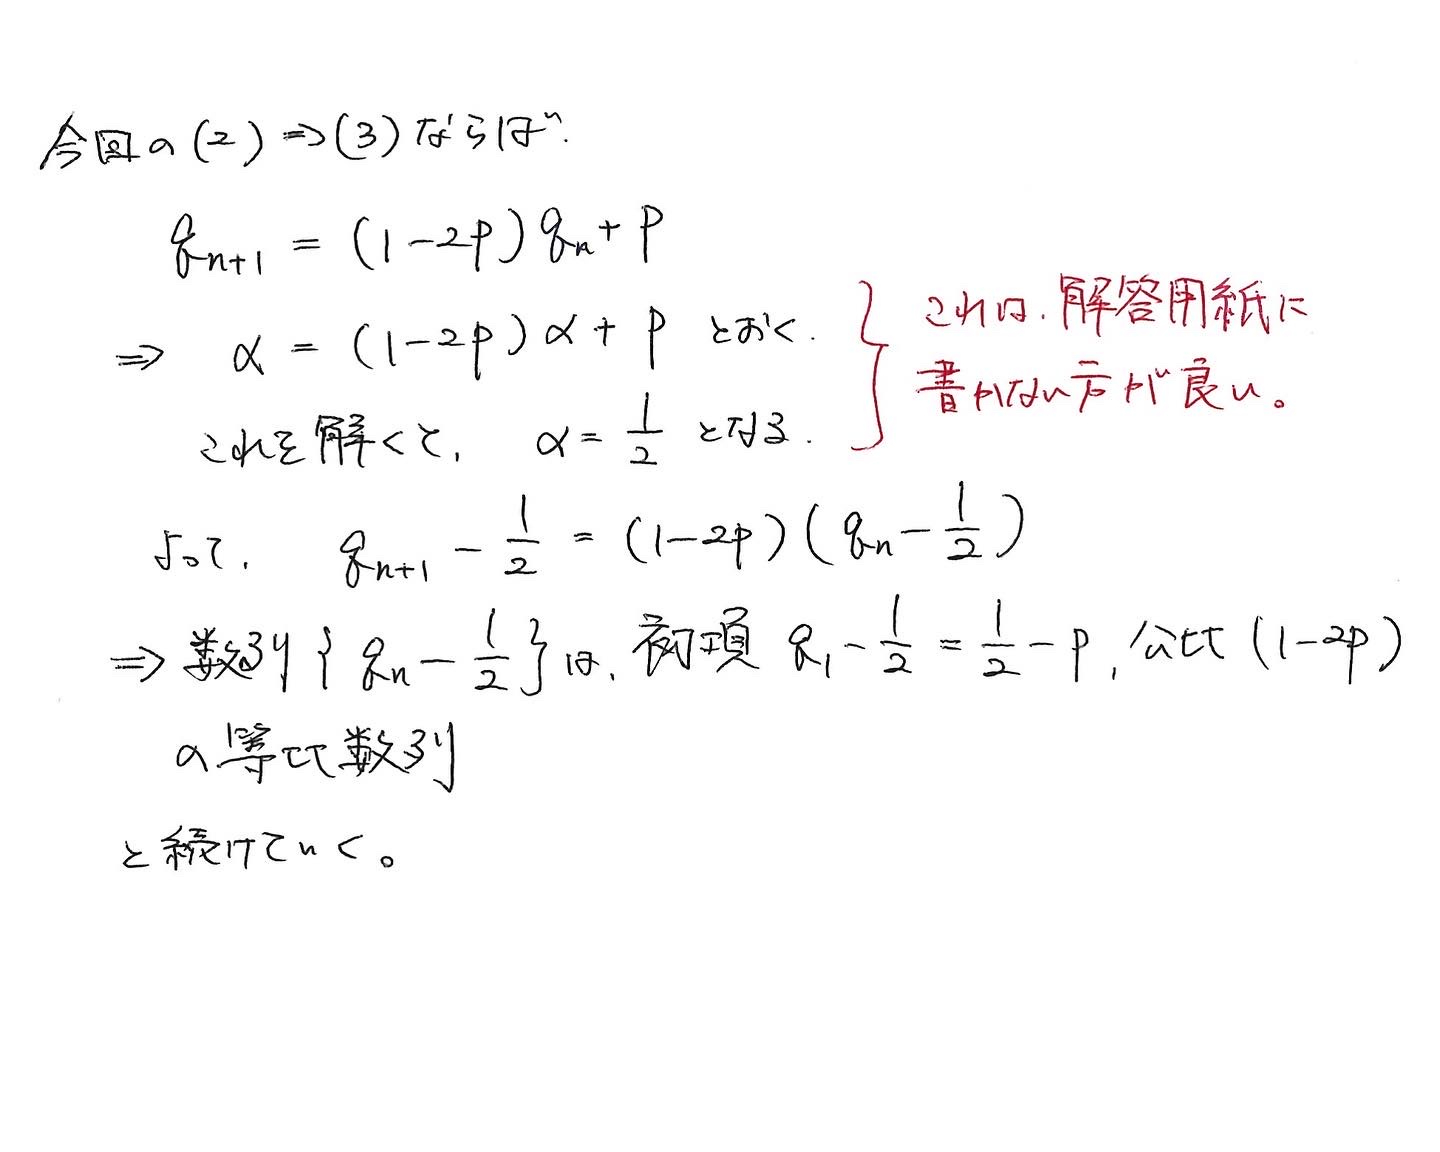 今回の(2)⇒(3)ならば、
q_{n+1} = (1-2p)q_n + p
⇒ α = (1-2p)α + p とおく.
これを解くと, α = 1/2 となる.
これは、解答用紙に
書かない方が良い。
よって, q_{n+1} - 1/2 = (1-2p)(q_n - 1/2)
⇒ 数列{q_n - 1/2}は, 初項 q_1 - 1/2 = 1/2 - p, 公比(1-2p)
の等比数列
と続けていく。